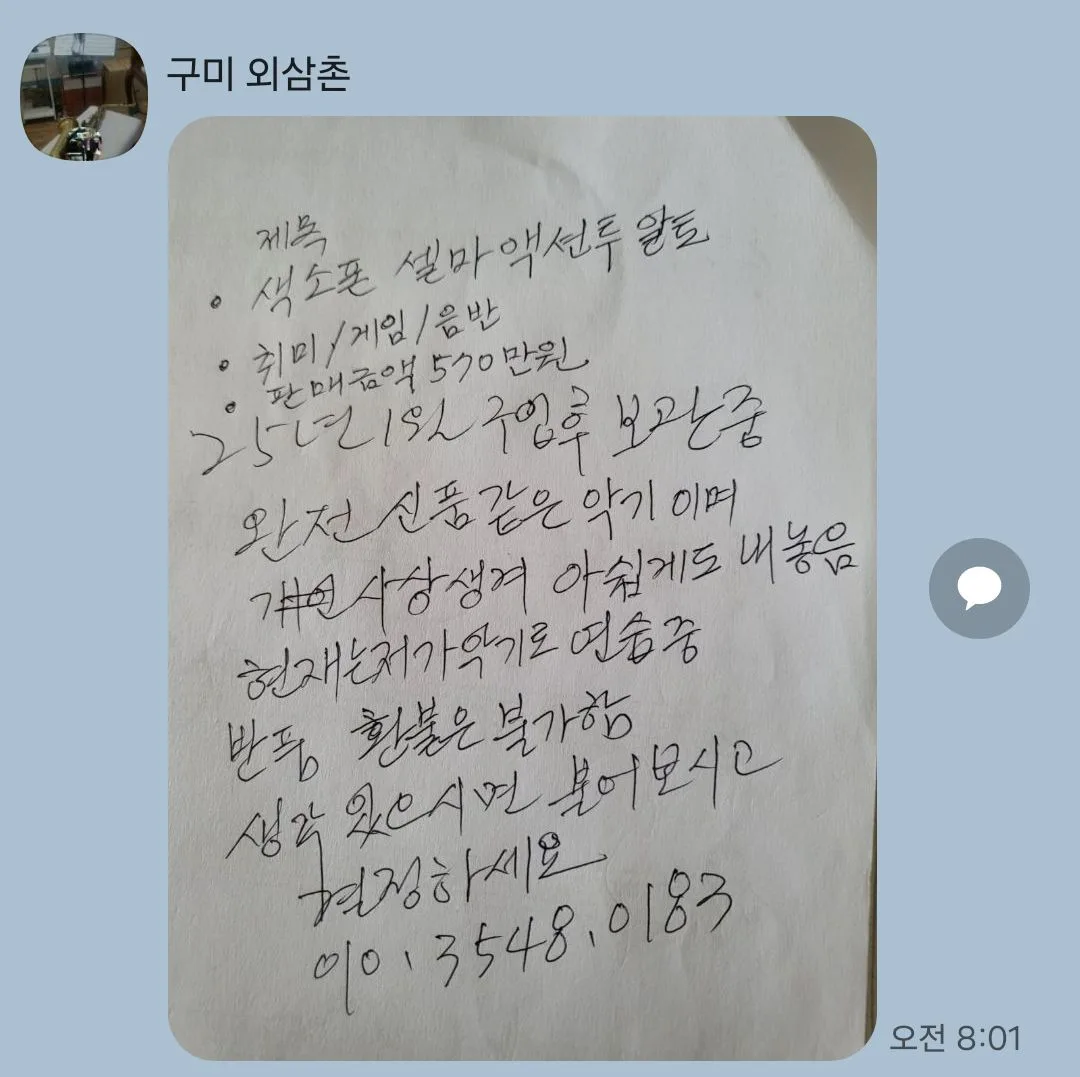 구미 외삼촌
제목
• 색소폰 셀마 액션투 알토
• 취미/게임/음반
• 판매금액 570만원
25년 1월 구입후 보관중
완전 신품같은 악기 이며
사상생겨 아쉽게도 내놓음
현재는저가악기로 연습중
반품 환불은 불가함
생각 있으시면 불어보시고
결정하세요
010.3548.0183
오전 8:01